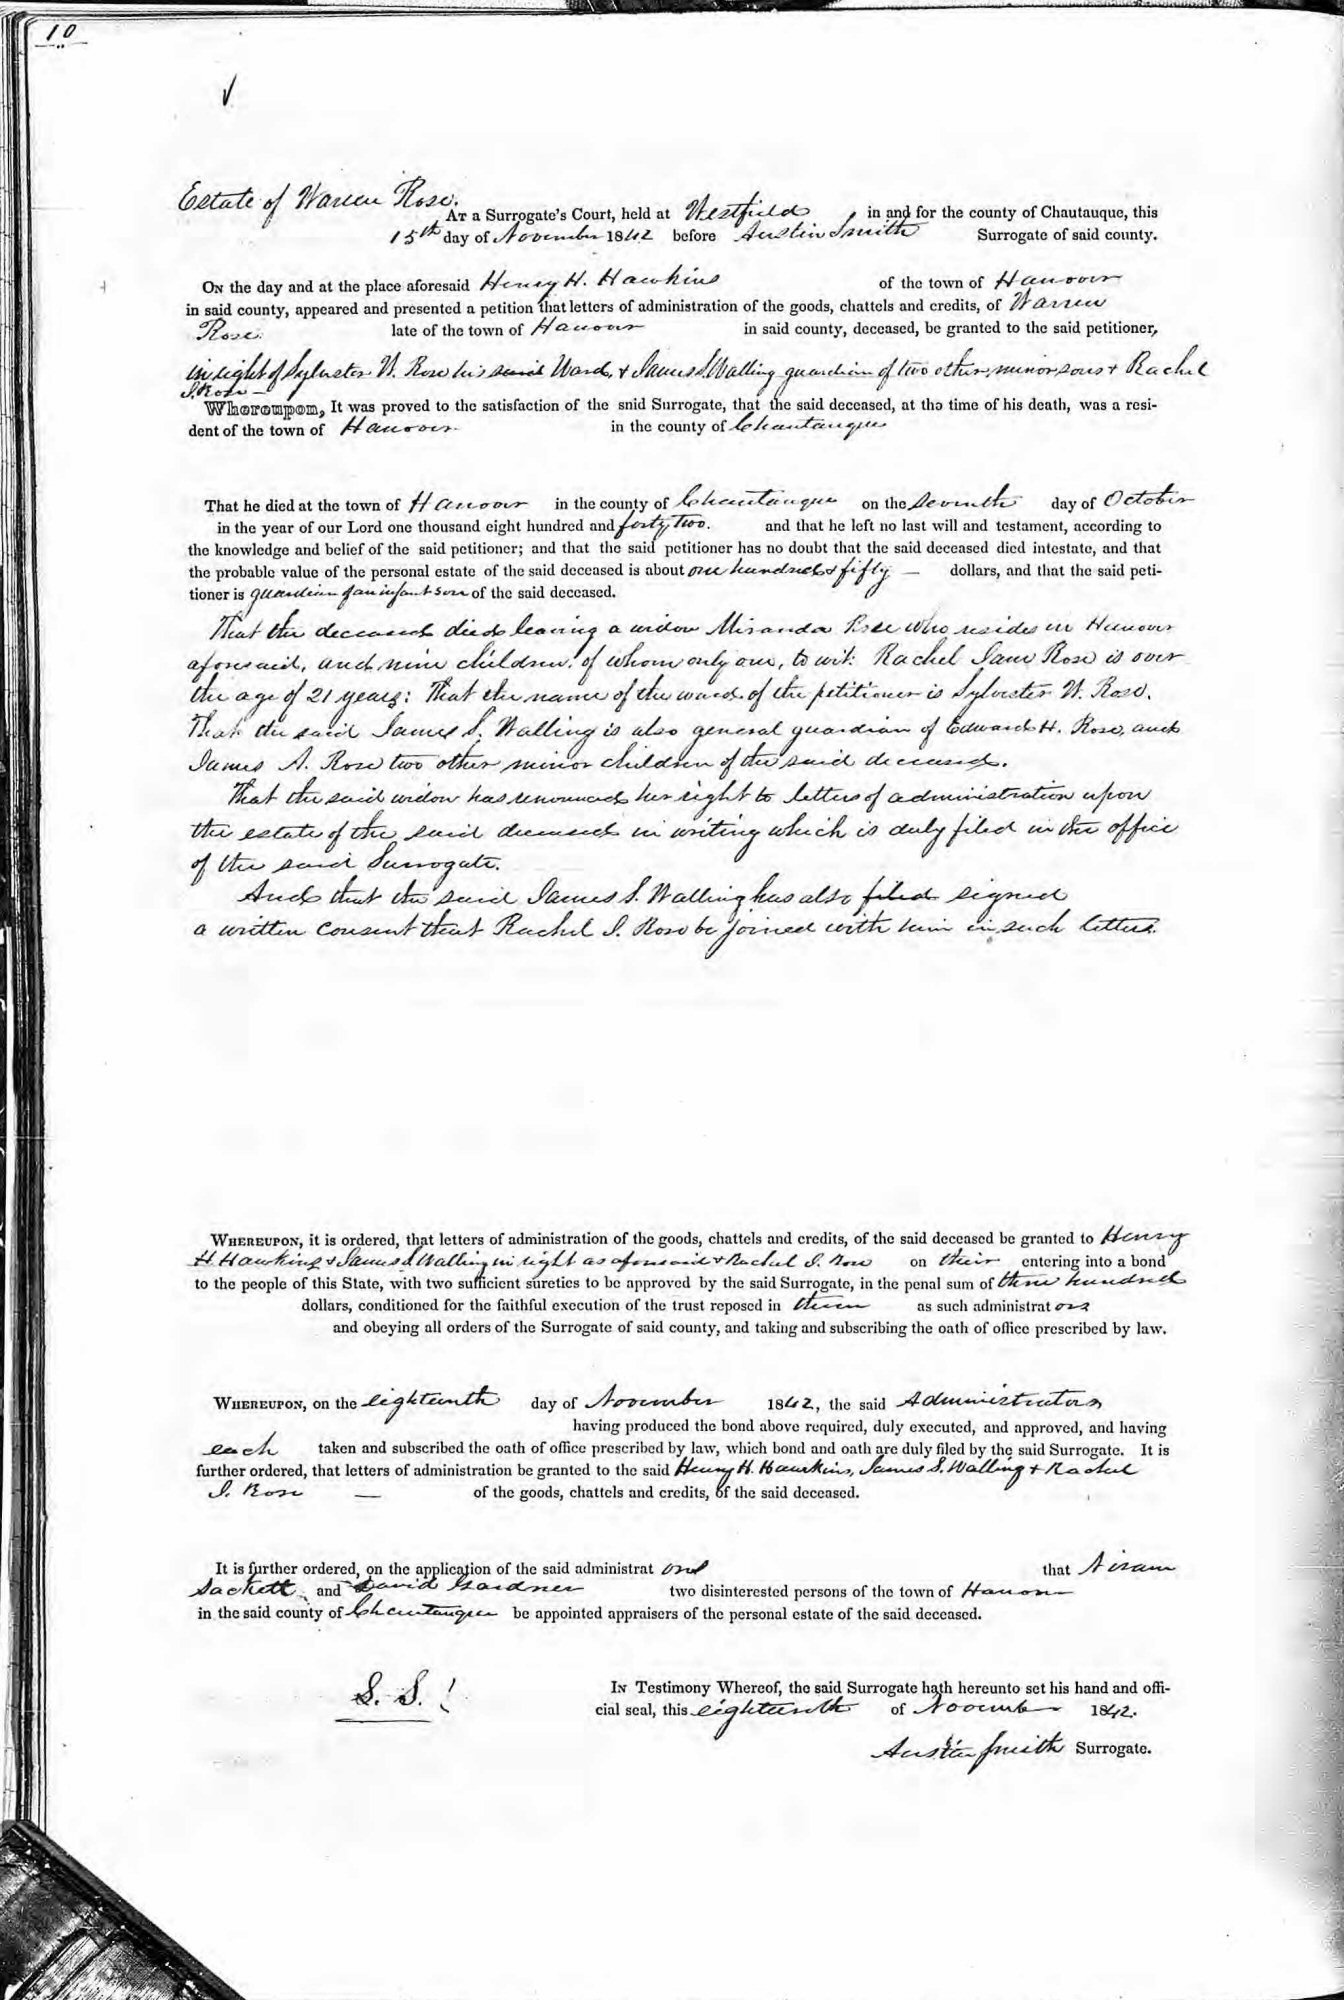 10
Estate of Warren Rose.
AT a Surrogate's Court, held at Westfield in and for the county of Chautauque, this
15th day of November 1842 before Austin Smith Surrogate of said county.
ON the day and at the place aforesaid Henry H. Hawkins of the town of Hanover
in said county, appeared and presented a petition that letters of administration of the goods, chattels and credits, of Warren
Rose late of the town of Hanover in said county, deceased, be granted to the said petitioner,
in right of Sylvester W. Rose his said Ward, & James S. Walling guardian of two other minor sons & Rachel
J. Rose —
Whereupon, It was proved to the satisfaction of the snid Surrogate, that the said deceased, at the time of his death, was a resi-
dent of the town of Hanover in the county of Chautauque
That he died at the town of Hanover in the county of Chautauque on the seventh day of October
in the year of our Lord one thousand eight hundred and forty two. and that he left no last will and testament, according to
the knowledge and belief of the said petitioner; and that the said petitioner has no doubt that the said deceased died intestate, and that
the probable value of the personal estate of the said deceased is about one hundred & fifty — dollars, and that the said peti-
tioner is guardian of an infant son of the said deceased.
That the deceased died leaving a widow Miranda Rose who resides in Hanover
aforesaid, and nine children, of whom only one, to wit: Rachel Jane Rose is over
the age of 21 years: That the name of the ward of the petitioner is Sylvester W. Rose.
That the said James S. Walling is also general guardian of Edward H. Rose, and
James A. Rose two other minor children of the said deceased.
That the said widow has renounced her right to letters of administration upon
the estate of the said deceased in writing which is duly filed in the office
of the said Surrogate.
And that the said James S. Walling has also filed signed
a written consent that Rachel J. Rose be joined with him in such letters.
WHEREUPON, it is ordered, that letters of administration of the goods, chattels and credits, of the said deceased be granted to Henry
H. Hawkins & James S. Walling in right as aforesaid & Rachel J. Rose on their entering into a bond
to the people of this State, with two sufficient sureties to be approved by the said Surrogate, in the penal sum of three hundred
dollars, conditioned for the faithful execution of the trust reposed in them as such administrators
and obeying all orders of the Surrogate of said county, and taking and subscribing the oath of office prescribed by law.
WHEREUPON, on the eighteenth day of November 1842, the said Administrators
having produced the bond above required, duly executed, and approved, and having
each taken and subscribed the oath of office prescribed by law, which bond and oath are duly filed by the said Surrogate. It is
further ordered, that letters of administration be granted to the said Henry H. Hawkins, James S. Walling & Rachel
J. Rose — of the goods, chattels and credits, of the said deceased.
It is further ordered, on the application of the said administrators that Niram
Sackett and David Gardner two disinterested persons of the town of Hanover
in the said county of Chautauque be appointed appraisers of the personal estate of the said deceased.
IN Testimony Whereof, the said Surrogate hath hereunto set his hand and offi-
cial seal, this eighteenth of November 1842.
Austin Smith Surrogate.